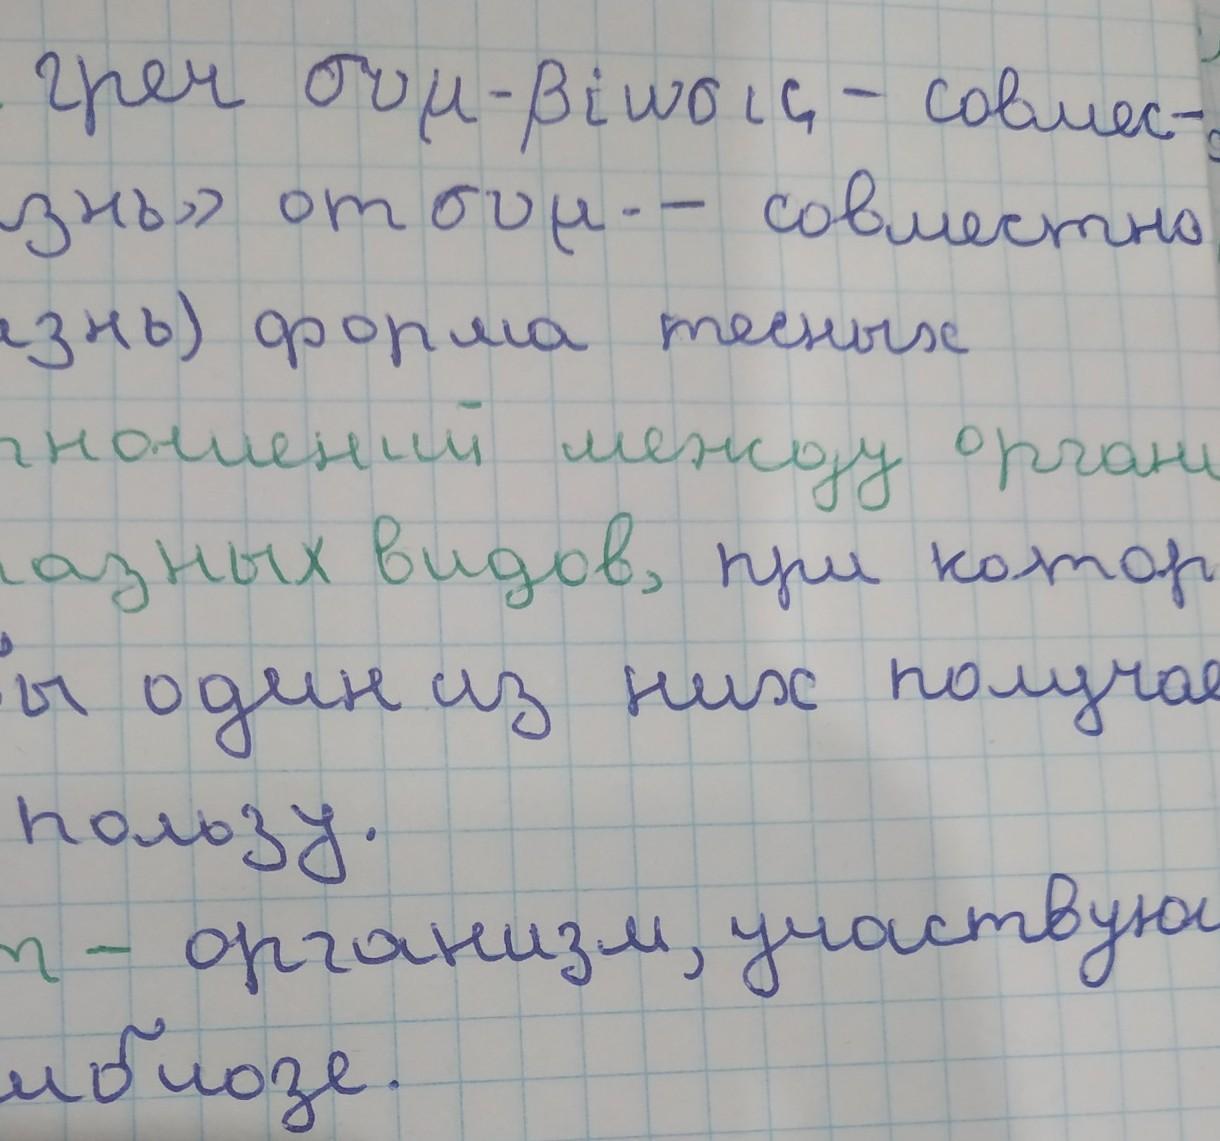 греч συμ-βίωσις - совмес-
знь» от συμ- - совместно
изнь) форма тесных
тношений между органи
азных видов, при котор
бы один из них получае
пользу.
т - организм, участвую
мбиозе.